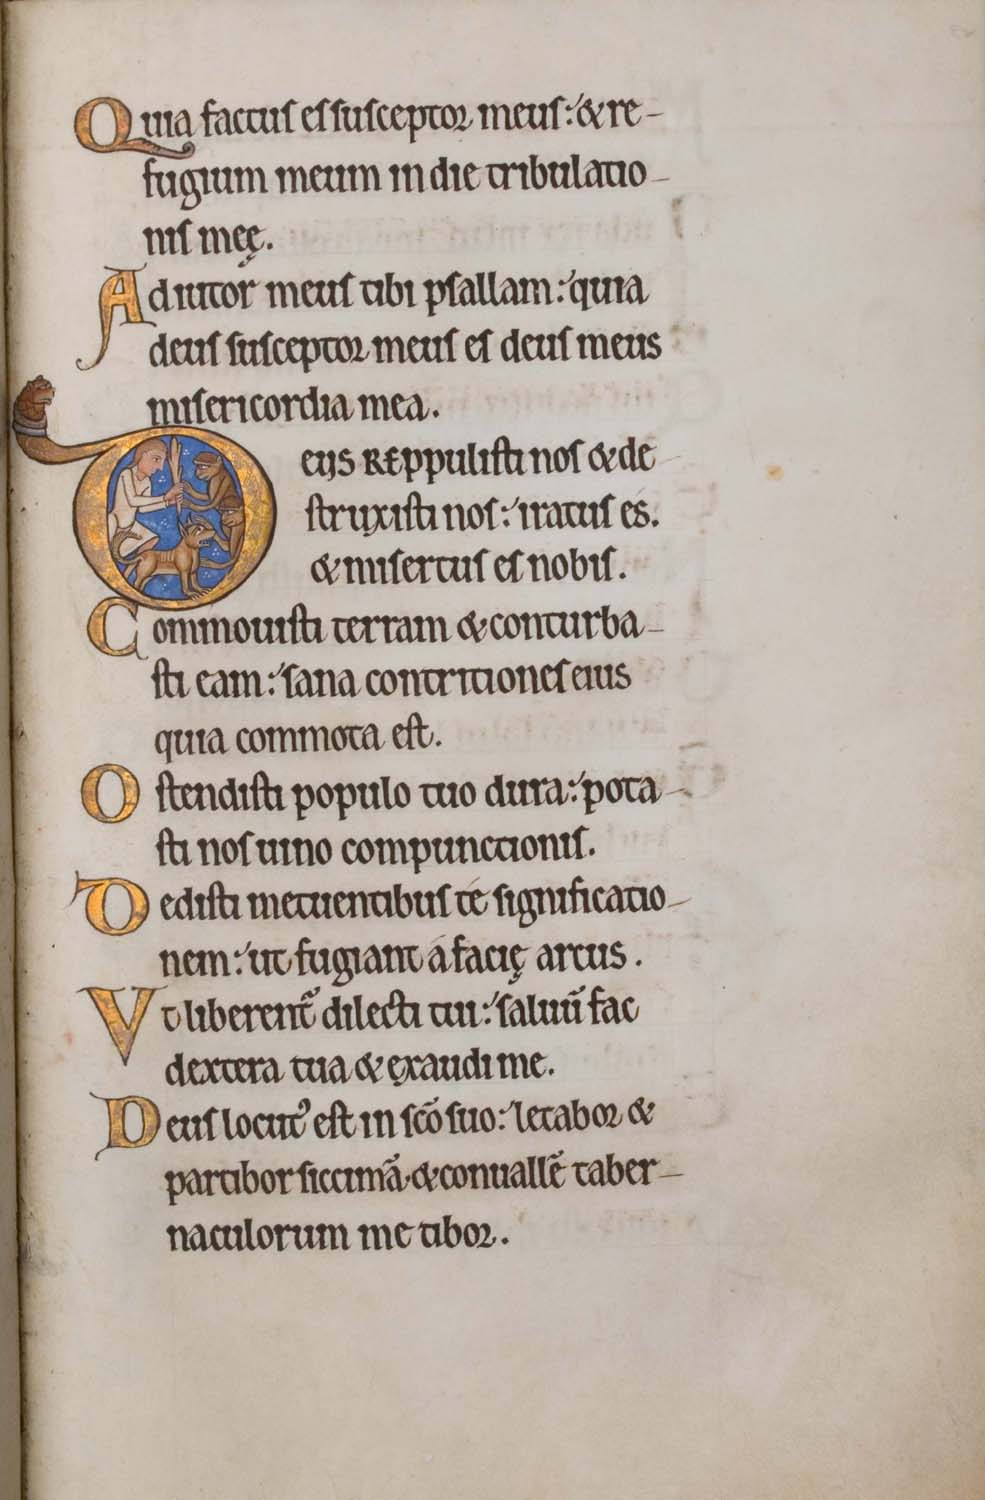 Quia factus es susceptor meus: & re-
fugium meum in die tribulatio-
nis meę.
Adiutor meus tibi psallam: quia
deus susceptor meus es deus meus
misericordia mea.
Deus reppulisti nos & de
struxisti nos: iratus es.
& misertus es nobis.
Commouisti terram & conturba-
sti eam: sana contritiones eius
quia commota est.
Ostendisti populo tuo dura: pota-
sti nos uino compunctionis.
Dedisti metuentibus te significatio-
nem: ut fugiant a facię arcus.
Vt liberent᷑ dilecti tui: saluū fac
dextera tua & exaudi me.
Deus locutꝰ est in sc̄o suo: letabor &
partibor siccimā & conuallē taber-
naculorum metibor.